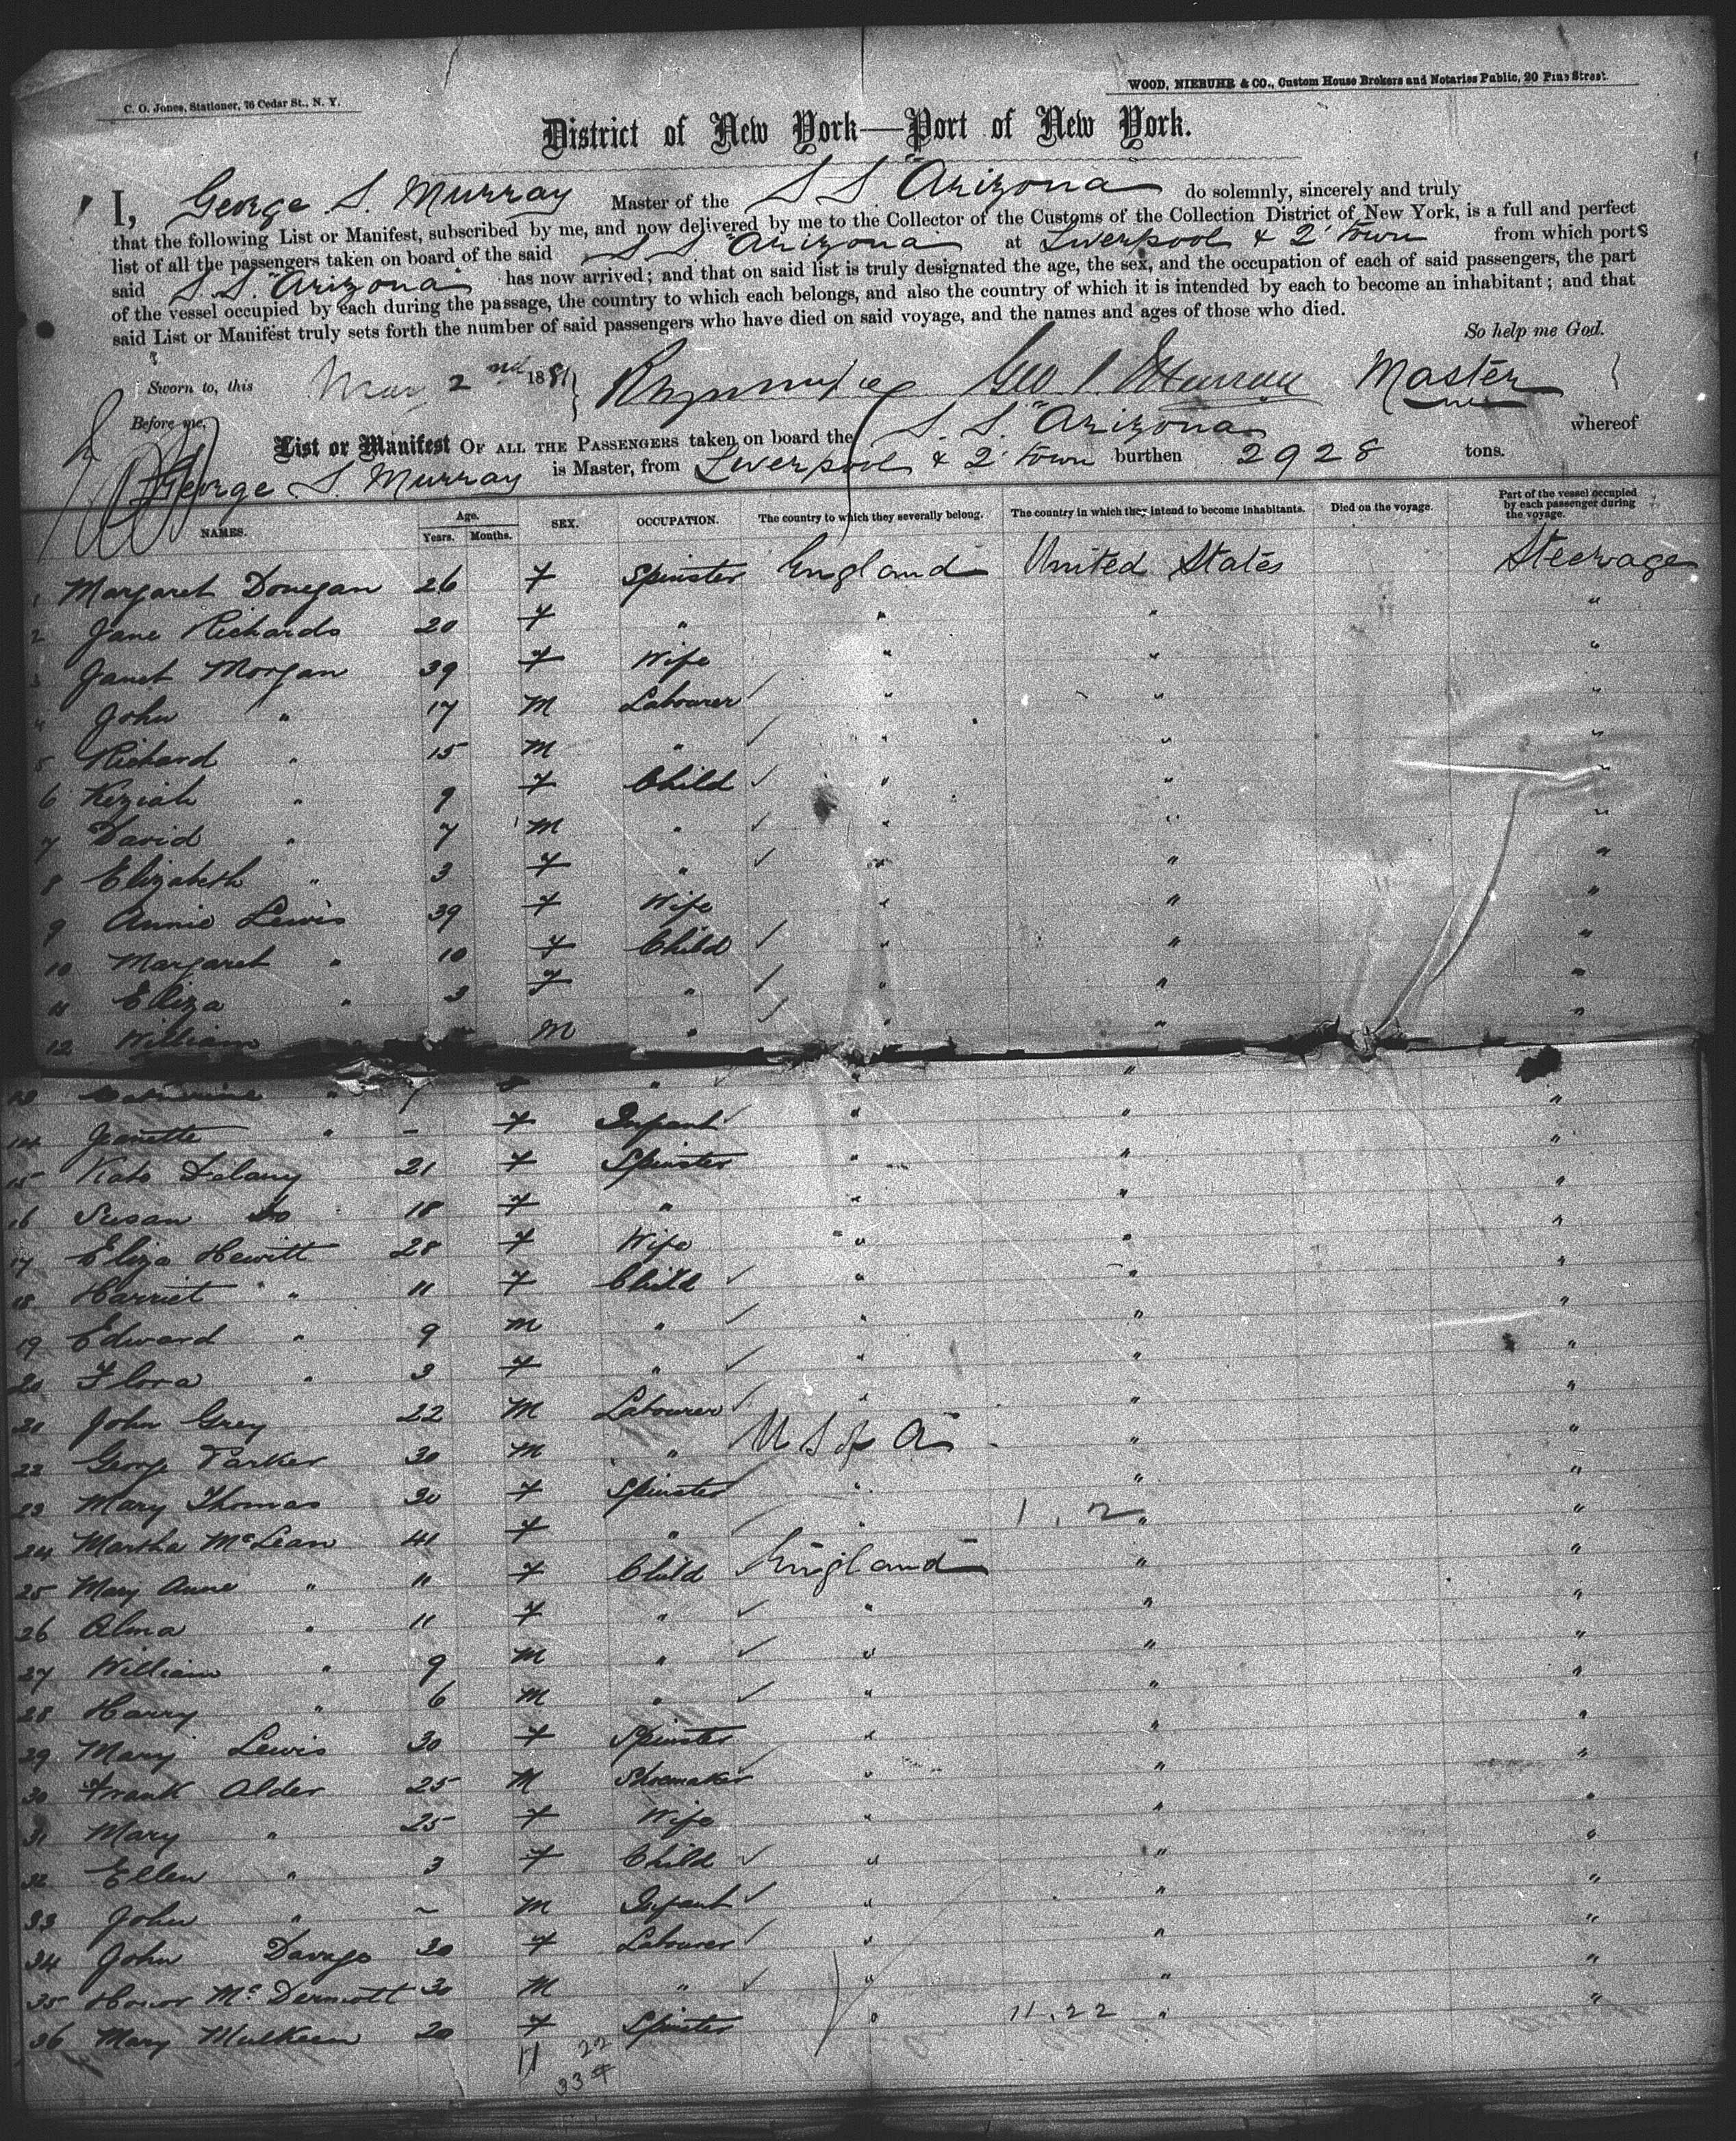 C. O. Jones, Stationer, 76 Cedar St., N. Y.
WOOD, NIEBUHR & CO., Custom House Brokers and Notaries Public, 20 Pine Street.
District of New York—Port of New York.
I, George S. Murray Master of the S S "Arizona do solemnly, sincerely and truly
that the following List or Manifest, subscribed by me, and now delivered by me to the Collector of the Customs of the Collection District of New York, is a full and perfect
list of all the passengers taken on board of the said S S "Arizona at Liverpool & 2' Town from which ports
said S. S. "Arizona" has now arrived; and that on said list is truly designated the age, the sex, and the occupation of each of said passengers, the part
of the vessel occupied by each during the passage, the country to which each belongs, and also the country of which it is intended by each to become an inhabitant; and that
said List or Manifest truly sets forth the number of said passengers who have died on said voyage, and the names and ages of those who died.
So help me God.
Sworn to, this May 2nd 1881 Geo S. Murray Master
Before me,
List or Manifest OF ALL THE PASSENGERS taken on board the S. S. "Arizona whereof
George S. Murray is Master, from Liverpool & 2' Town burthen 2928 tons.
NAMES. Age. Years. Months. SEX. OCCUPATION. The country to which they severally belong. The country in which they intend to become inhabitants. Died on the voyage. Part of the vessel occupied by each passenger during the voyage.
1 Margaret Donegan 26 F Spinster England United States Steerage
2 Jane Richards 20 F " " " "
3 Janet Morgan 39 F Wife " " "
4 John " 17 M Labourer " " "
5 Richard " 15 M " " " "
6 Keziah " 9 F Child " " "
7 David " 7 M " " " "
8 Elizabeth " 3 F " " " "
9 Annie Lewis 39 F Wife " " "
10 Margaret " 10 F Child " " "
11 Eliza " 3 F " " " "
12 William M " " " "
13 Catherine " " " "
14 Jeanette " - F Infant " " "
15 Kate Delany 21 F Spinster " " "
16 Susan Do 18 F " " " "
17 Eliza Hewitt 28 F Wife " " "
18 Harriet " 11 F Child " " "
19 Edward " 9 M " " " "
20 Flora " 3 F " " " "
21 John Grey 22 M Labourer " " "
22 George Parker 30 M " U S of A " "
23 Mary Thomas 30 F Spinster " " "
24 Martha McLean 41 F " " 1 . 2 " "
25 Mary Anne " 11 F Child England " "
26 Alma " 11 F " " " "
27 William " 9 M " " " "
28 Harry " 6 M " " " "
29 Mary Lewis 30 F Spinster " " "
30 Frank Alder 25 M Shoemaker " " "
31 Mary " 25 F Wife " " "
32 Ellen " 3 F Child " " "
33 John " ~ M Infant " " "
34 John 30 F Labourer " " "
35 Honor McDermott 30 M " " " "
36 Mary Mulkeen 20 F Spinster " 11.22 " "
11 22
33